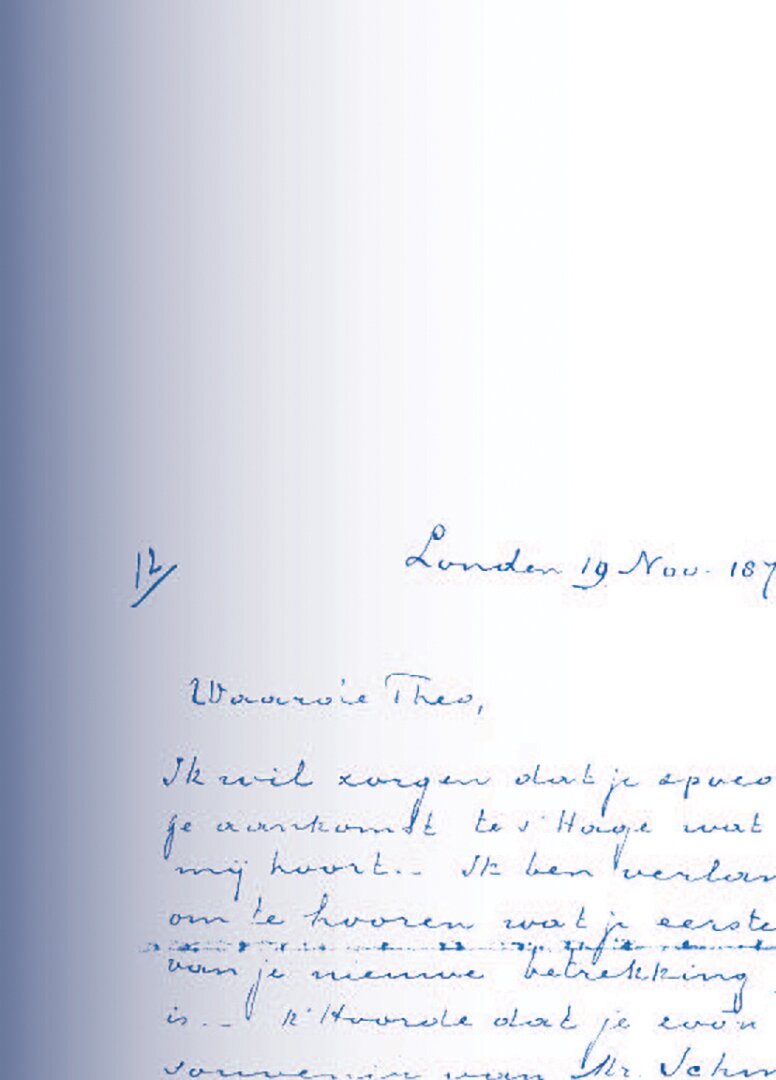 12/
Londen 19 Nov. 187
Waarde Theo,
Ik wil zorgen dat je spoe
je aankomst te s'Hage wat
mij hoort.. Ik ben verlan
om te hooren wat je eerste
van je nieuwe betrekking
is.. k'Hoorde dat je
souvenir van Mr. Schm